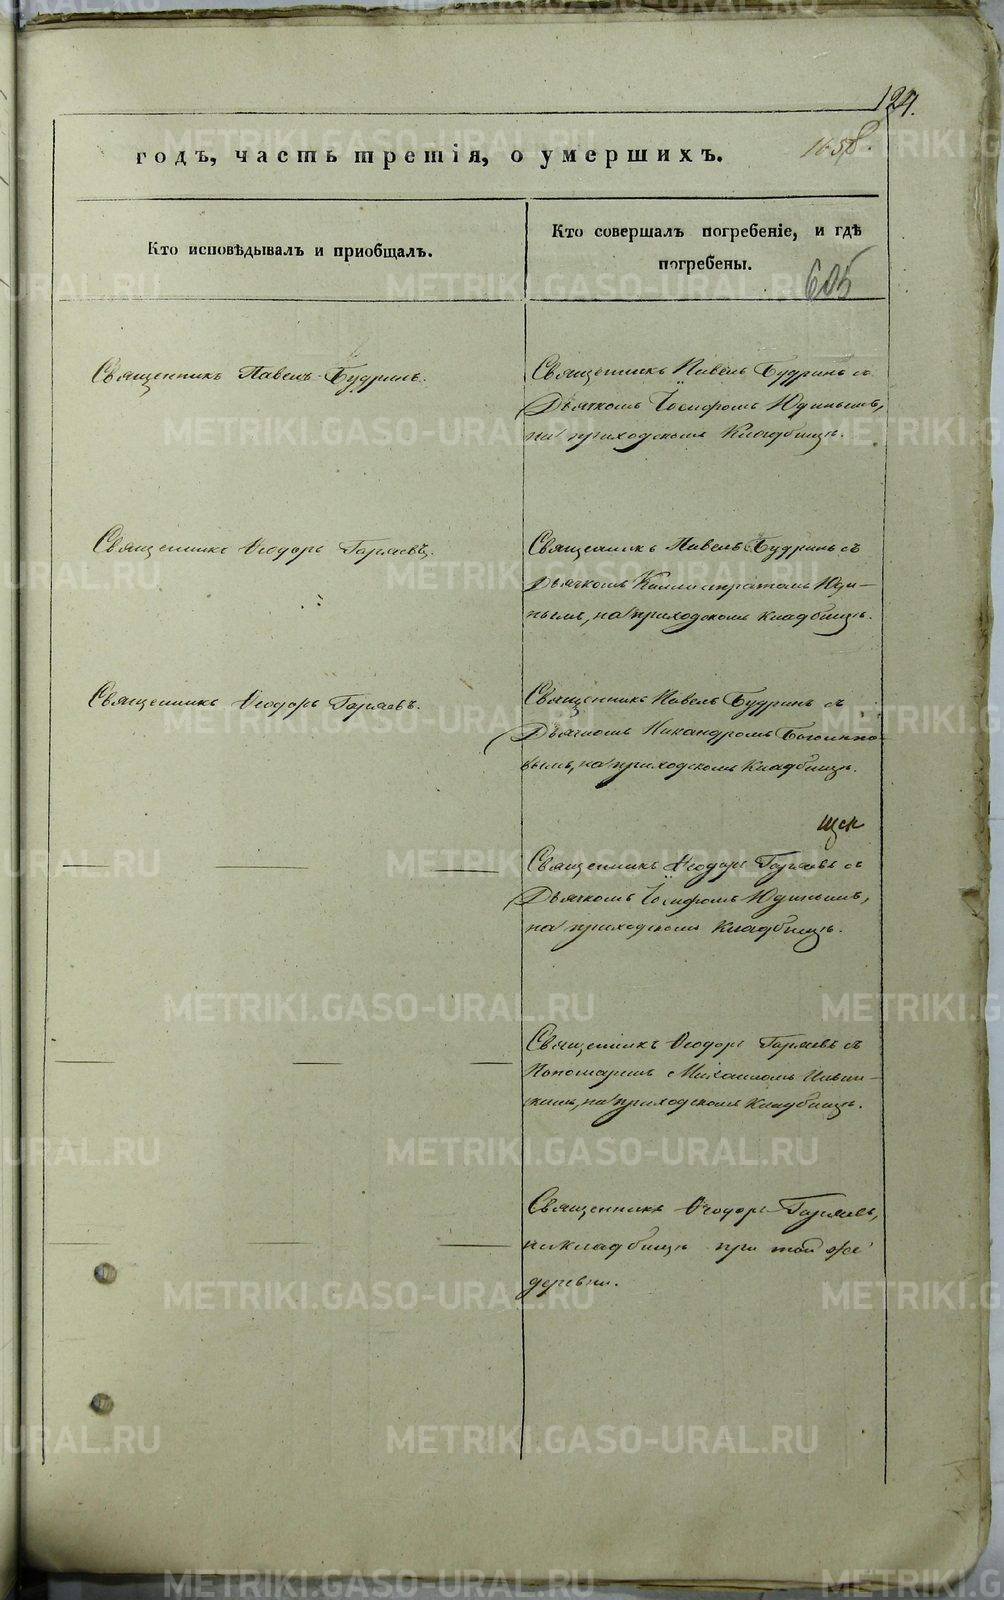 124.
годъ, часть третія, о умершихъ.
1058.
Кто исповѣдывалъ и пріобщалъ.
Кто совершалъ погребеніе, и гдѣ
погребены.
605
Священникъ Павелъ Будринъ.
Священникъ Павелъ Будринъ съ
Дьячкомъ Іосифомъ Юдинымъ,
на приходскомъ Кладбищѣ.
Священникъ Ѳеодоръ Гаряевъ.
Священникъ Павелъ Будринъ съ
Дьячкомъ Каллистратомъ Юди-
нымъ, на приходскомъ кладбищѣ.
Священникъ Ѳеодоръ Гаряевъ.
Священникъ Павелъ Будринъ съ
Дьячкомъ Никандромъ
вымъ, на приходскомъ Кладбищѣ.
Священникъ Ѳеодоръ Гаряевъ съ
Дьячкомъ Іосифомъ Юдинымъ,
на приходскомъ Кладбищѣ.
Священникъ Ѳеодоръ Гаряевъ съ
Пономаремъ Михаиломъ
скимъ, на приходскомъ Кладбищѣ.
Священникъ Ѳеодоръ Гаряевъ,
на кладбищѣ при той же
деревни.
METRIKI.GASO-URAL.RU